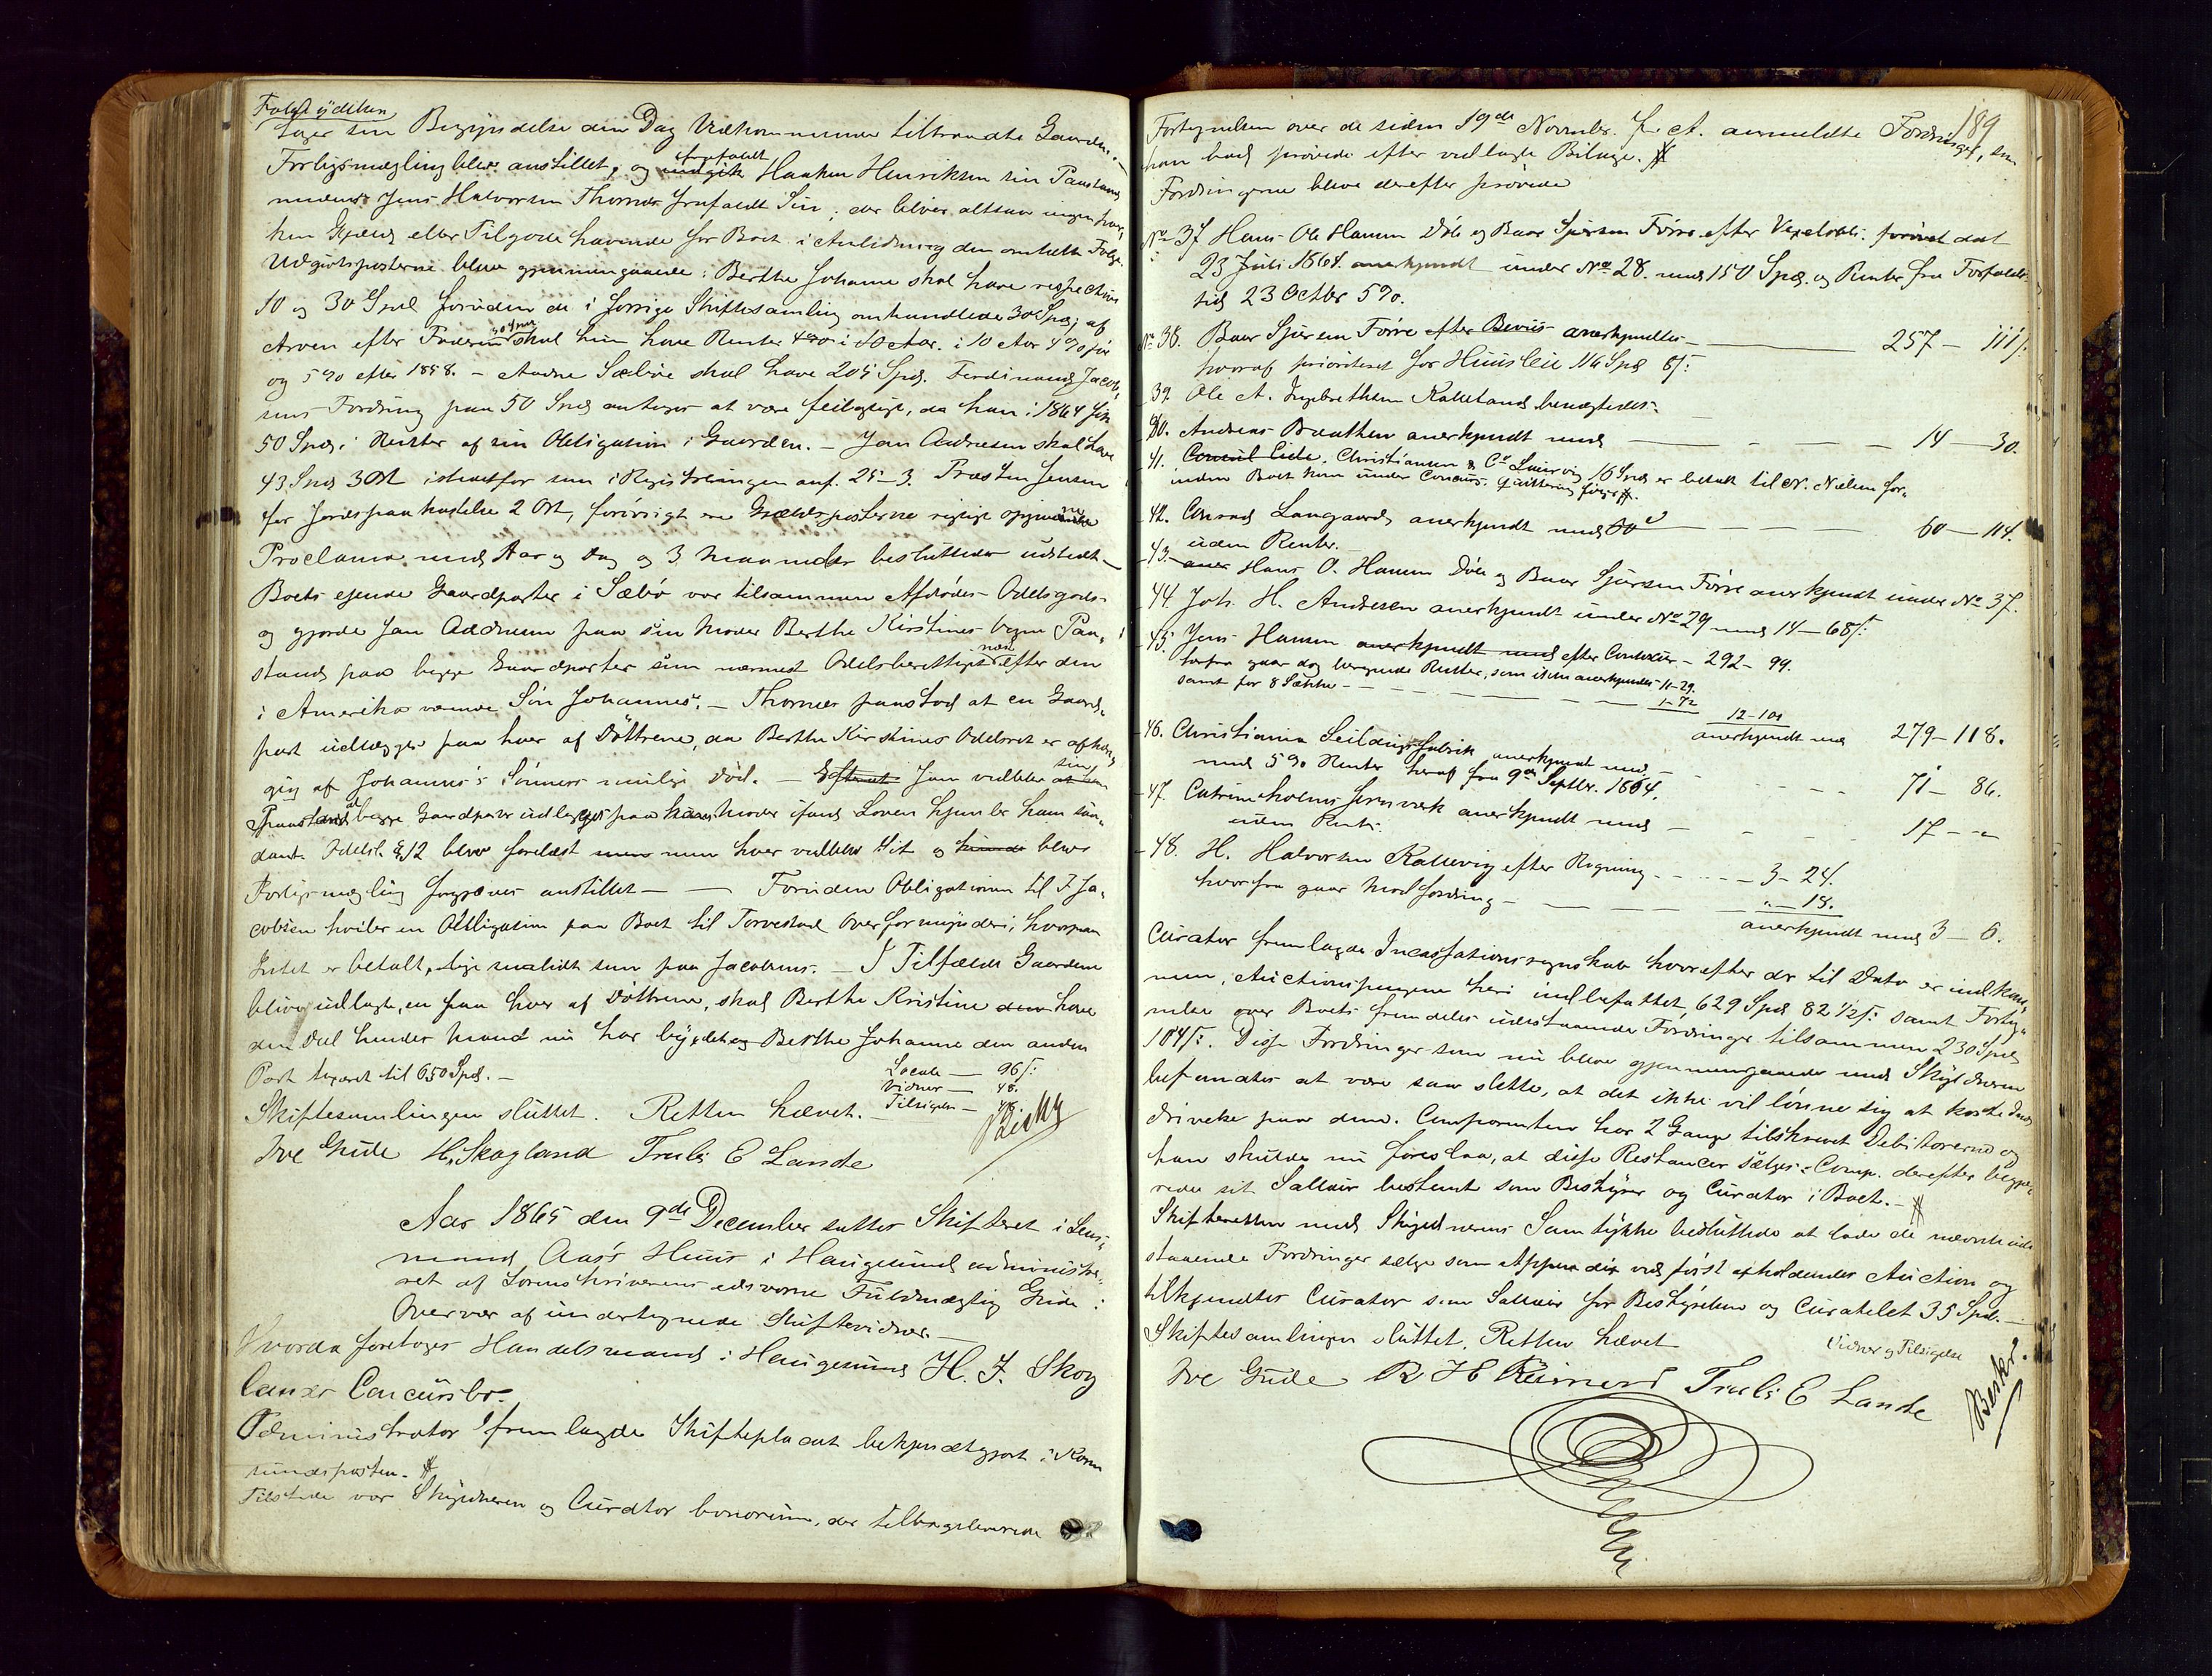 Folgeydelsen
tager sin Begyndelse den Dag Vedkommende tiltraadte Gaarden. —
Forligsmægling blev anstillet, og frafaldt Haaken Henriksen sin Paastand
medens Jens Halvorsen Thornes frafaldt Sin; der bliver altsaa ingen hver-
ken Gjæld eller Tilgode havende for Boet i Anledning den omtalte Folge.
Udgivtsposterne bleve gjennemgaaede: Berthe Johanne skal have respective
10 og 30 Spd foruden de i forrige Skiftesamling omhandlede 30 Spd; af
Arven efter Faderen 30 Spd skal hun have Renter 4% i 10 Aar. i 10 Aar 4% før
og 5% efter 1858. — Andre Sæbøe skal have 205 Spd. Ferdinand Jacob-
sens Fordring paa 50 Spd antages at være feilagtig, da han i 1864 fik
50 Spd i Renter af sin Obligation i Gaarden. — Jan Andresen skal have
43 Spd 3 Ort istedetfor som i Registreringen anf. 25-3. Præsten Jensen
for Jordspaakastelse 2 Ort, forøvrigt ere Gjældsposterne rigtige opgivne
Proclama med Aar og Dag og 3 Maaneder besluttedes udstedt —
Boets ejende Gaardparter i Sæbø var tilsammen Afdødes Odelsgods
og gjorde Jan Addresen paa sin Moder Berthe Kirstines Vegne Paa-
stand paa begge Gaardparter som nærmest Odelsberettiget næst efter den
i Amerika værende Søn Johannes. — Thornes paastod at en Gaard-
part udlægges paa hver af Døttrene, da Berthe Kirstines Odelsret er afhæn-
gig af Johannes's Sønners mulige Død. — Jan vedblev sin
Paastand at begge Gaardparter udlægges paa hans Moder ifald Loven hjemler ham saa-
dant. Odelsl. § 12 blev forelæst men hver vedblev Sit og blev
Forligsmægling forgjæves anstillet — — Foruden Obligationen til F. Ja-
cobsen hviler en Obligation paa Boet til Torvestad Overformynderi, hvorpaa
Intet er betalt, lige saalidt som paa Jacobsens. — I Tilfælde Gaardene
bliver udlagte, en paa hver af Døttrene, skal Berthe Kristine have
den Deel hendes Mand nu har bygslet og Berthe Johanne den anden
Part taxeret til 650 Spd. —
Locale — 96 ß:
Vidner — 48.
Tilsigelse — 48.
Skiftesamlingen sluttet. Retten hævet. —
Beskr
Ive Gude H. Skogland Truls E Lande
Aar 1865 den 9de December sattes Skifteret i Lens-
mand Aas's Huus i Haugesund administre-
ret af Sorenskriverens edsvorne Fuldmægtig Gude i
Overvær af undertegnede Skiftevidner. —
Hvorda foretoges Handelsmand i Haugesund H. J. Skog
lands Concursbo.
Administrator fremlagde Skifteplacat bekjendtgjort i Karm
sundsposten. #
Tilstede var Skyldneren og Curator bonorum, der tilbageleverede
189
Fortegnelsen over de siden 19de November f. A. anmeldte Fordringer, som
han havde prøvede efter vedlagte Bilage. #
Fordringerne bleve derefter prøvede
No 37 Hans Ole Hansen Døle og Baar Sjursen Førre efter Vexelobli. dat
23 Juli 1864. anerkjendt under No 28. med 150 Spd. og Renter fra Forfalds-
tid 23 Octbr 5%.
No 38. Baar Sjursen Førre efter Beviis anerkjendtes — 257 — 111 ß:
hvoraf prioriteret for Huusleie 116 Spd 8 ß:
39. Ole A. Ingebrethsen Kalleland benægtedes.
40. Andreas Braathen anerkjendt med — — — 14 — 30.
41. Consul Eide. Christiansen & Co Laurvig 16 Spd er betalt til N. Nielsen for-
inden Boet kom under Concurs. Quittering følger #.
42. Conrad Langaard anerkjendt med — — — 60 — 114.
uden Renter.
43. Hans O. Hansen Døle og Baar Sjursen Førre anerkjendt under No 37.
44. Joh. H. Andresen anerkjendt under No 29 med 14 — 68 ß:
45. Jens Hansen anerkjendt med efter Contocur. — 292 — 99.
herfra gaar dog beregnede Renter, som ikke anerkjendes 11-29.
samt for 8 Sække — — — 1-72
12-101
anerkjendt med 279 — 118.
46. Christiania Seildugsfabrik anerkjendt med — 71 — 86.
med 5% Renter heraf fra 9de Septbr. 1864.
47. Catrineholms Jernværk anerkjendt med — — — 17 — "
uden Rente.
48. H. Halvorsen Kallevig efter Regning — — — 3 - 24.
hvorfra gaar Modfordring — — — " — 18.
anerkjendt med 3 — 6.
Curator fremlagde Incassationsregnskab hvorefter der til Dato er indkom-
men, Auctionspengene heri indbefattet, 629 Spd 82 1/2 ß: samt Forteg-
nelse over Boets fremdeles udestaaende Fordringer tilsammen 230 Spd
104 ß:. Disse Fordringer som nu bleve gjennemgaaede med Skyldneren
befandtes at være saa slette, at det ikke vil lønne sig at koste Ind-
drivelse paa dem. Comparenten har 2 Gange tilskrevet Debitorerne og
han skulde nu foreslaa, at disse Restancer sælges. Comp. derefter begje-
rede sit Sallair bestemt som Bestyrer og Curator i Boet. — #
Skifteretten med Skyldnerens Samtykke besluttede at lade de nævnte ude
staaende Fordringer sælge som Appendix ved først afholdendes Auction og
tilkjendtes Curator som Sallair for Bestyrelsen og Curatelet 35 Spd. —
Skiftesamlingen sluttet. Retten hævet
Vidner og Tilsigelse
Ive Gude R H Reimers Truls E Lande
Beskr.